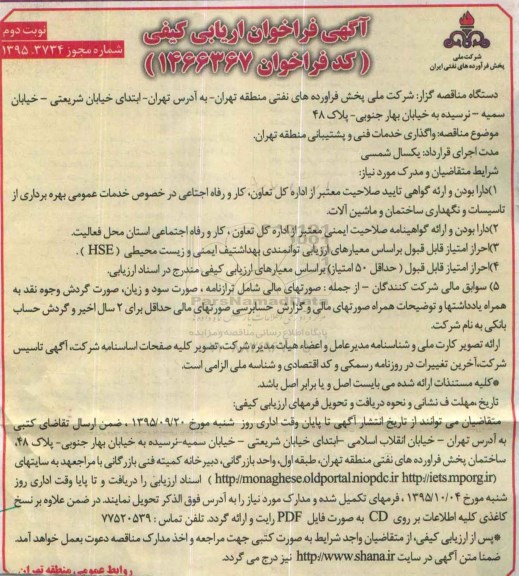 نوبت دوم
شماره مجوز ۳۷۳۴. ۱۳۹۵
آگهی فراخوان اریابی کیفی
( کد فراخوان ۱۴۶۶۳۶۷ )
شرکت ملی
پخش فرآورده های نفتی ایران
دستگاه مناقصه گزار: شرکت ملی پخش فراورده های نفتی منطقه تهران- به آدرس تهران- ابتدای خیابان شریعتی – خیابان
سمیه – نرسیده به خیابان بهار جنوبی- پلاک ۴۸
موضوع مناقصه:واگذاری خدمات فنی و پشتیبانی منطقه تهران.
مدت اجرای قرارداد: یکسال شمسی
شرایط متقاضیان و مدرک مورد نیاز:
۱)دارا بودن و ارئه گواهی تایید صلاحیت معتبر از اداره کل تعاون، کار و رفاه اجتاعی در خصوص خدمات عمومی بهره برداری از
تاسیسات و نگهداری ساختمان و ماشین آلات.
۲)دارا بودن و ارائه گواهینامه صلاحیت ایمنی معتبر از اداره کل تعاون ، کار و رفاه اجتماعی استان محل فعالیت.
۳)احراز امتیاز قابل قبول براساس معیارهای ارزیابی توانمندی بهداشتیف ایمنی و زیست محیطی ( HSE ) .
۴)احراز امتیاز قابل قبول ( حداقل ۵۰ امتیاز) براساس معیارهای ارزیابی کیفی مندرج در اسناد ارزیابی.
۵) سوابق مالی شرکت کنندگان – از جمله : صورتهای مالی شامل ترازنامه ، صورت سود و زیان، صورت گردش وجوه نقد به
همراه یادداشتها و توضیحات همراه صورتهای مالی و گزارش حسابرسی صورتهای مالی حداقل برای ۲ سال اخیر و گردش حساب
بانکی به نام شرکت.
ParsNamadData
پایگاه اطلاع رسانی مناقصه و مزایده
ارائه تصویر کارت ملی و شناسنامه مدیرعامل و اعضاء هیات مدیره شرکت، تصویر کلیه صفحات اساسنامه شرکت، آگهی تاسیس
شرکت،آخرین تغییرات در روزنامه رسمکی و کد اقتصادی و شناسه ملی الزامی است.
*کلیه مستندات ارائه شده می بایست اصل و یا برابر اصل باشد.
تاریخ ،مهلت ف نشانی و نحوه دریافت و تحویل فرمهای ارزیابی کیفی:
متقاضیان می توانند از تاریخ انتشار آگهی تا پایان وقت اداری روز شنبه مورخ ۱۳۹۵/۰۹/۲۰ ، ضمن ارسال تقاضای کتبی
به آدرس تهران – خیابان انقلاب اسلامی –ابتدای خیابان شریعتی – خیابان سمیه-نرسیده به خیابان بهار جنوبی- پلاک ۴۸،
ساختمان پخش فراورده های نفتی منطقه تهران، طبقه اول، واحد بازرگانی، دبیرخانه کمیته فنی بازرگانی با مراجعهد به سایتهای
(http://monaghese.oldportal.niopdc.ir http://iets.mporg.ir) اسناد ارزیابی را دریافت و تا پایا وقت اداری روز
شنبه مورخ ۱۳۹۵/۱۰/۰۴ ، فرمهای تکمیل شده و مدارک مورد نیاز را به آدرس فوق الذکر تحویل نمایند. در ضمن علاوه بر نسخ
کاغذی کلیه اطلاعات بر روی CD به صورت فایل PDF رایت و ارائه گردد. تلفن تماس : ۷۷۵۲۰۵۳۹
*پس از ارزیابی کیفی، از متقاضیان واجد شرایط به صورت کتبی جهت مراجعه و اخذ مدارک مناقصه دعوت بعمل خواهد آمد.
ضمنا متن آگهی در سایت http://www.shana.ir نیز درج می گردد.
روابط عمومی منطقه تهران